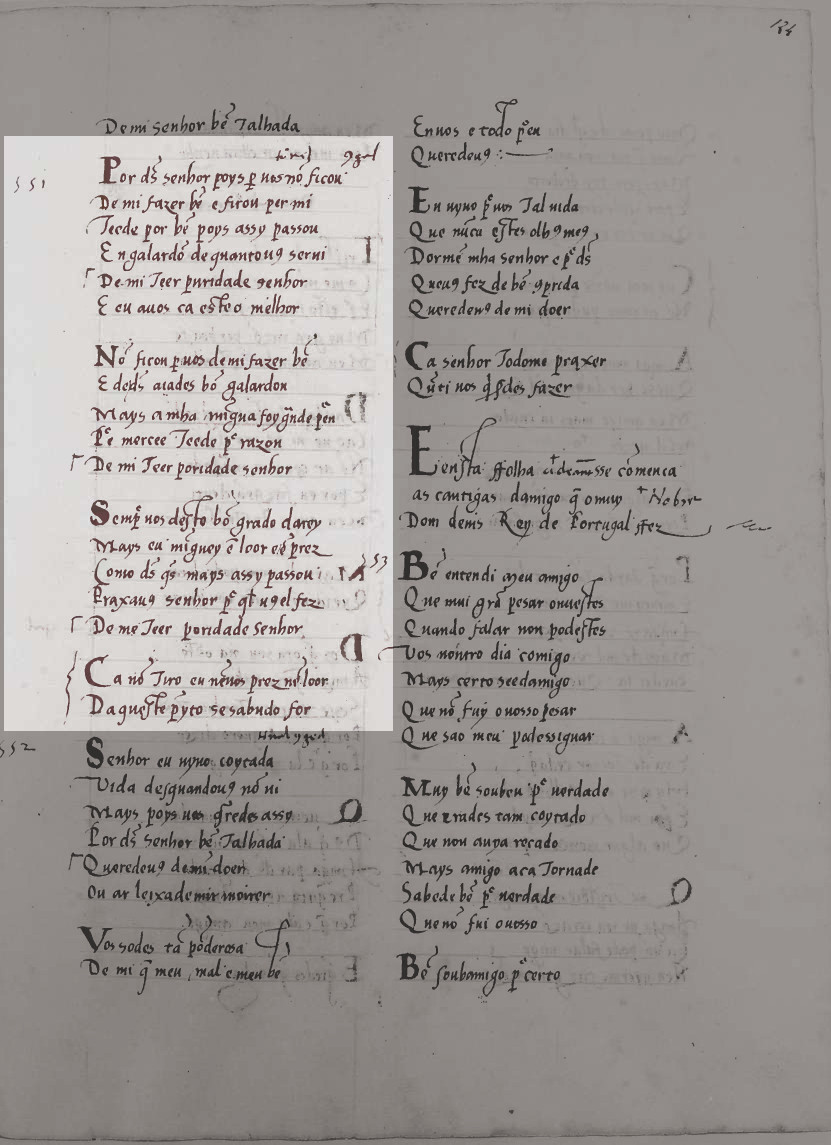 De mi senhor bē Talhada
551
Por ds̄ senhor poys ꝑ uos nō ficou
De mi fazer bē e ficou per mi
Teede por bē poys assy passou
En galardō de quanto uꝯ serui
De mi Teer puridade senhor
E eu auos ca este o melhor
Nō ficou ꝑ uos de mi fazer bē
E de ds̄ aiades bō galardon
Mays a mha mīgua foy grande
mercee Teede razon
De mi Teer poridade senhor
Semp̄ uos desto bō grado darey
Mays eu mīguey ē loor e ē prez
Como ds̄ q̄s mays assy passou
Praza uꝯ senhor
De me Teer poridade senhor
Ca nō Tiro eu nē uos prez nē loor
Daqueste p̄yto se sabudo for
552
Senhor eu uyuo coytada
Vida des quando uꝯ nō ui
Mays poys uos q̄redes assy
Por ds̄ senhor bē Talhada
Querede uꝯ de mi doer
Ou ar leixademir moirer
Vos sodes tā poderosa
De mi q̄ meu mal e meu bē
En uos e todo
Querede uꝯ
En uyuo Tal uida
Que nūca estes olhꝯ meꝯ
Dormē mha senhor e ds̄
Que uꝯ fez de bē ꝯprida
Querede uꝯ de mi doer
Ca senhor Todo me prazer
uos fazer
553
En esta ffolha comença
as cantigas damigo q̄ o muy Nobre
Dom denis Rey de Portugal ffez
Bē entendi meu amigo
Que mui grā pesar ouuestes
Quando falar non podestes
Vos nōutro dia comigo
Mays certo seed amigo
Que nō fuy o uosso pesar
Que sao meu podess iguar
Muy bē soubeu uerdade
Que erades tam coytado
Que non auya recado
Mays amigo aca Tornade
Sabede bē uerdade
Que nō fui o uosso
Bē soub amigo certo